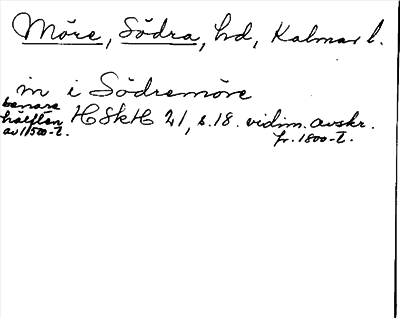 Möre, Södra, hd, Kalmar l.
in i Södremöre
senare
hälften
av 1500-t.
HSkH 21, s. 18. vidim. avskr.
fr. 1800-t.